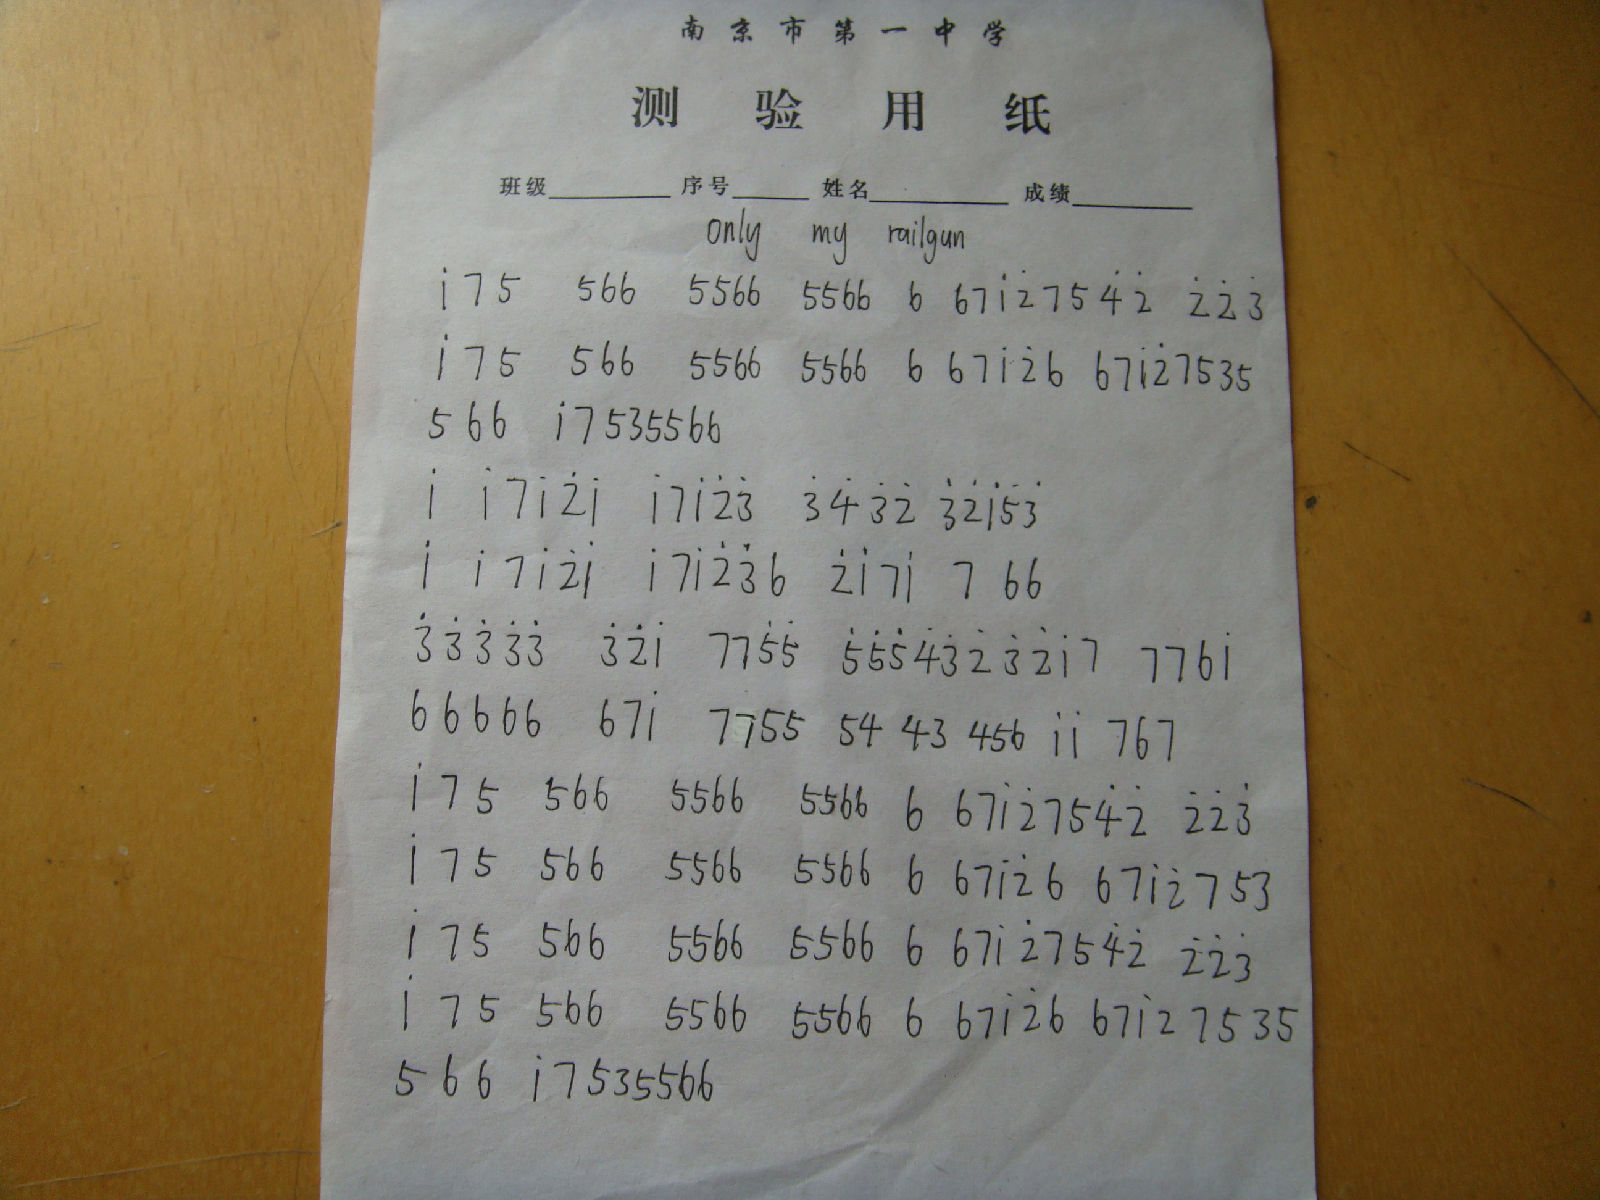 南京市第一中学
测验用纸
班级________ 序号_____ 姓名_________ 成绩________
only my railgun
i̇75 566 5566 5566 6 671̇2̇754̇2̇ 2̇2̇3̇
1̇75 566 5566 5566 6 671̇2̇6 671̇2̇7535
566 1̇7535566
1̇ 1̇71̇2̇1̇ 1̇71̇2̇3̇ 3̇4̇3̇2̇ 3̇2̇1̇5̇3̇
1̇ 1̇71̇2̇1̇ 1̇71̇2̇3̇6 2̇1̇71̇ 7 66
3̇3̇3̇3̇3̇ 3̇2̇1̇ 775̇5̇ 5̇5̇5̇4̇3̇2̇3̇2̇1̇7 7761̇
66666 671̇ 7755 54 43 456 1̇1̇ 767
1̇75 566 5566 5566 6 671̇2̇754̇2̇ 2̇2̇3̇
1̇75 566 5566 5566 6 671̇2̇6 671̇2̇753
1̇75 566 5566 5566 6 671̇2̇754̇2̇ 2̇2̇3̇
1̇75 566 5566 5566 6 671̇2̇6 671̇27535
566 1̇7535566